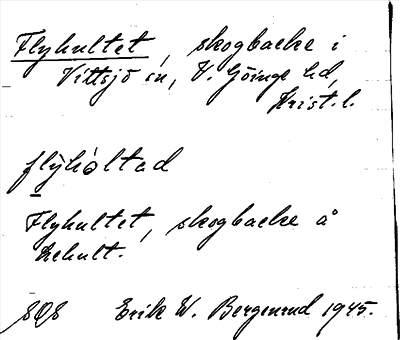 Flyhultet, skogbacke i
Vittsjö sn, V. Göinge hd,
Krist. l.
flỳhòltad
Flyhultet, skogbacke å
Lehult.
Erik W. Bergenrud 1945.